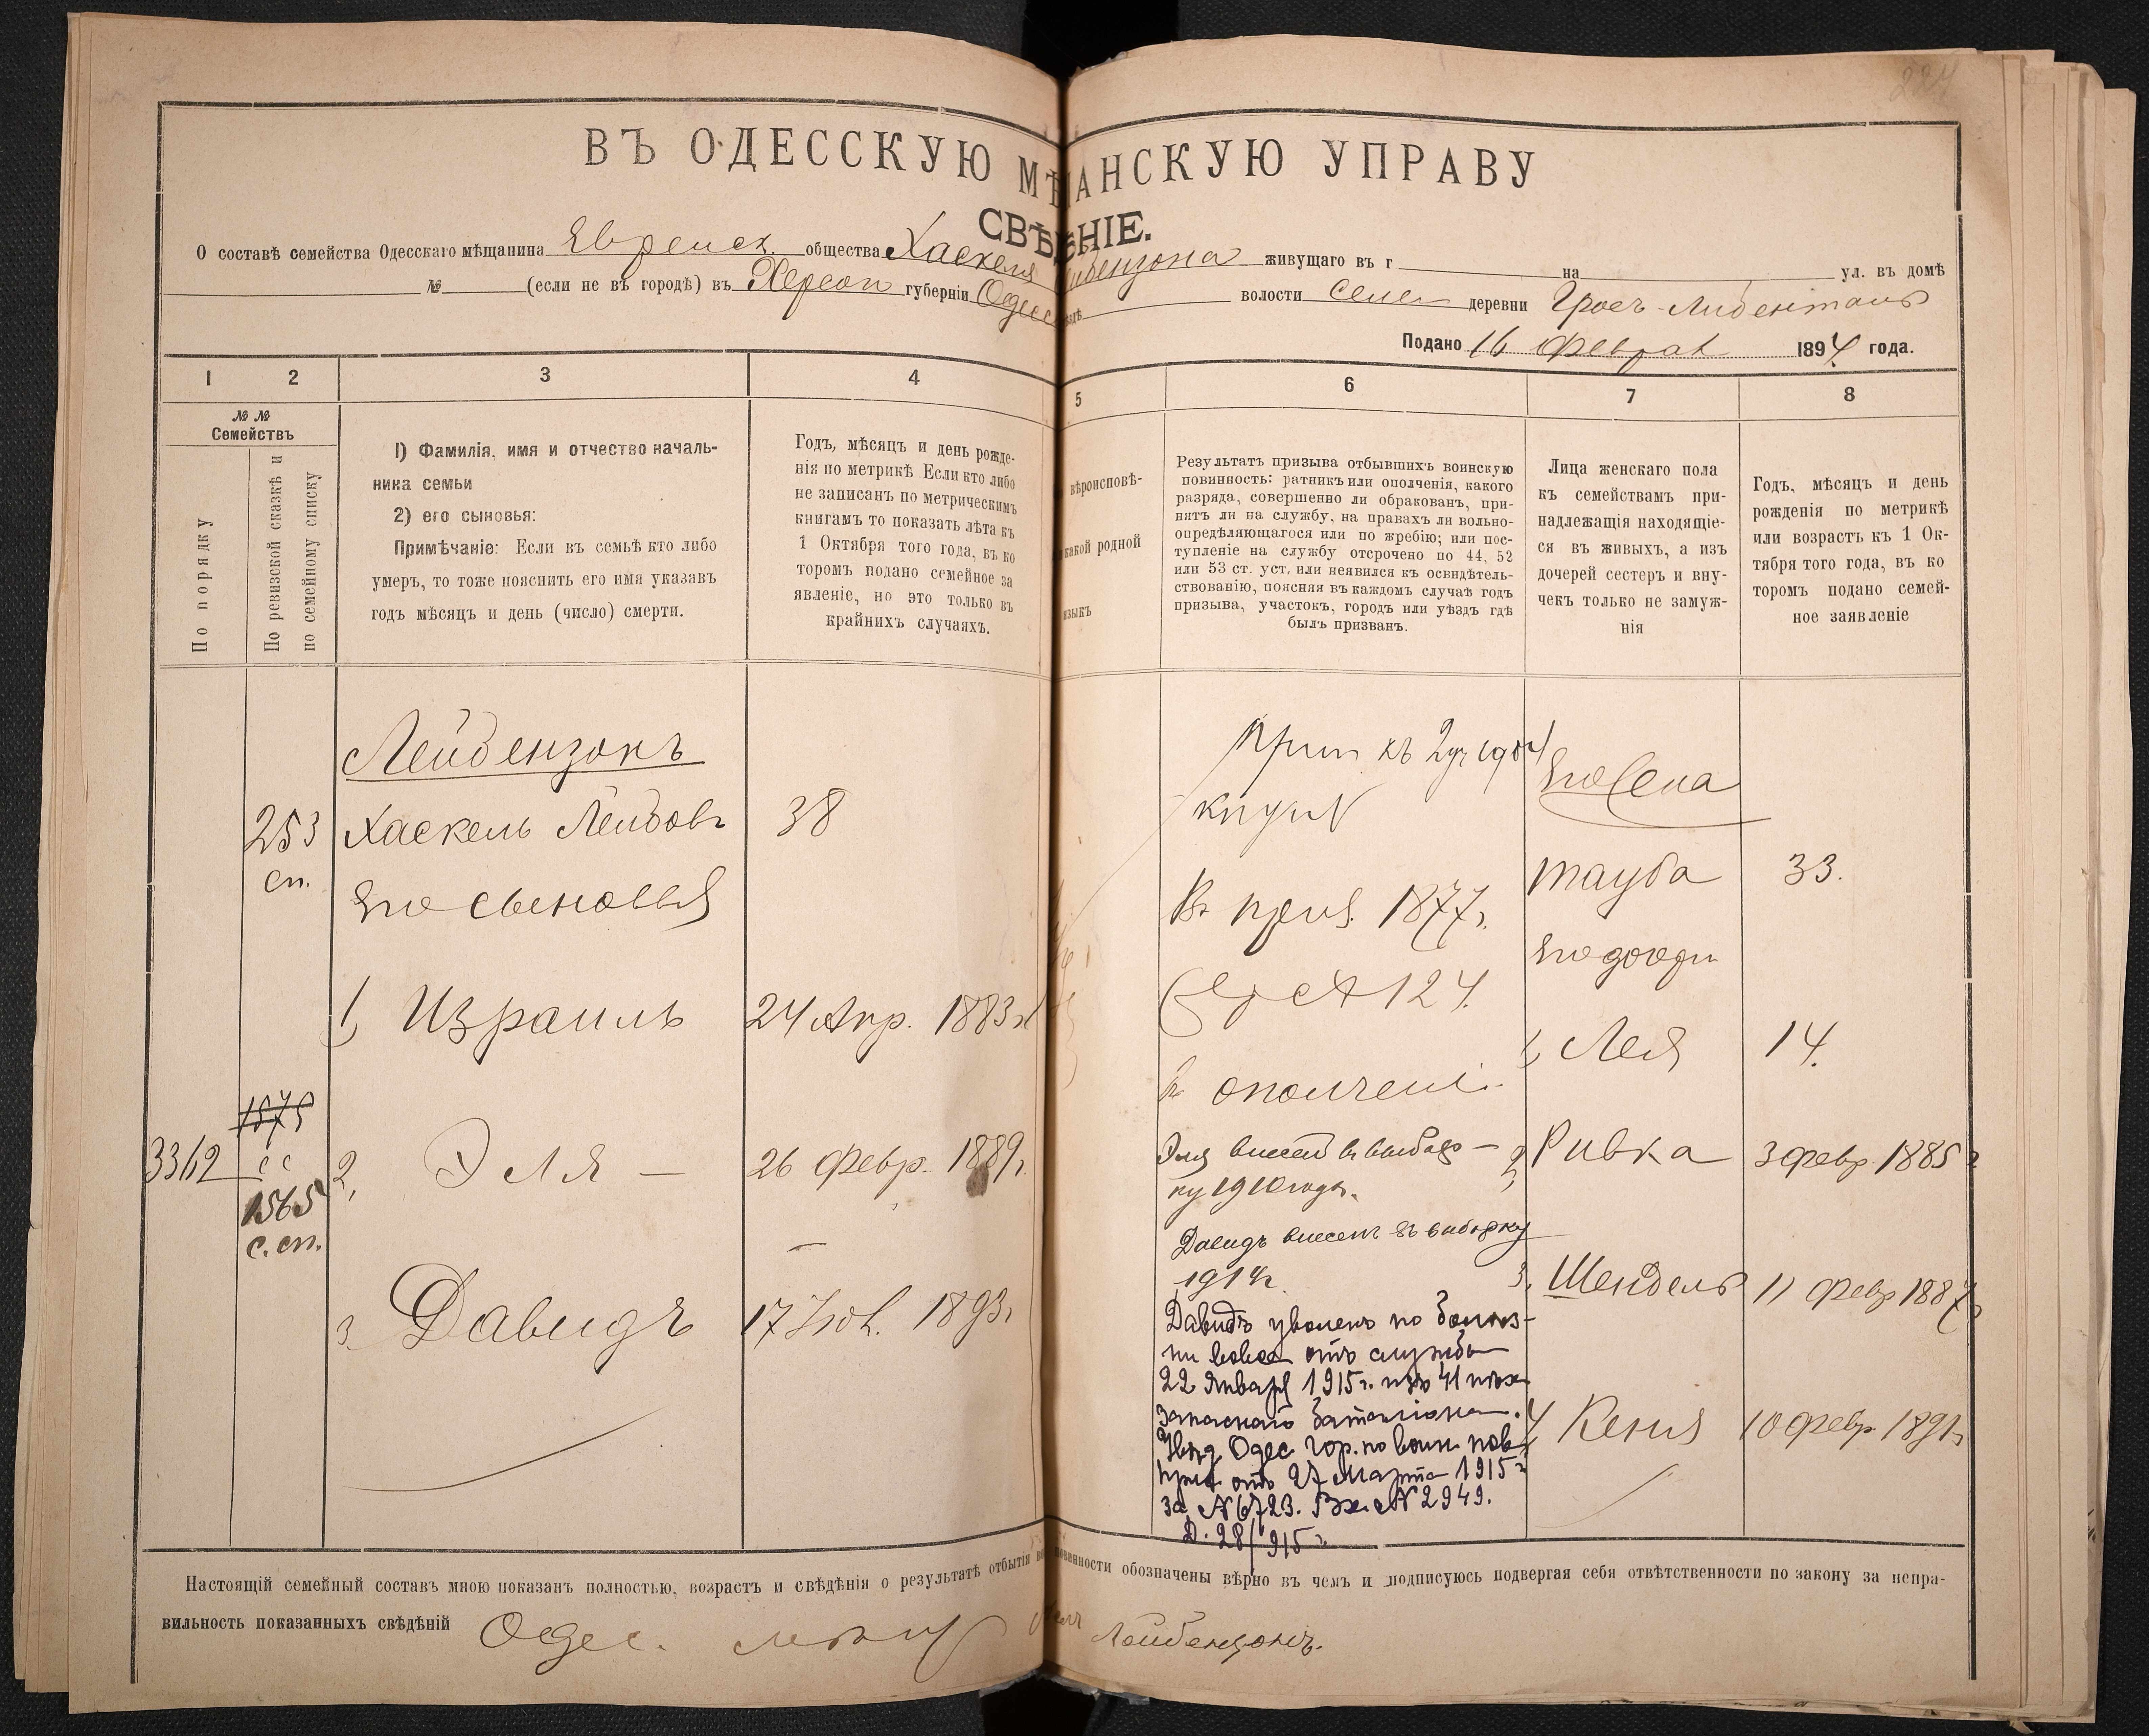 224
ВЪ ОДЕССКУЮ МѢЩАНСКУЮ УПРАВУ
СВѢДѢНІЕ.
О составѣ семейства Одесскаго мѣщанина Еврейск. общества Хаскеля Лейбензона живущаго въ г на ул. въ домѣ
№ (если не въ городѣ) въ Херсон губерніи Одес уѣздѣ волости селе деревни Гросъ-Либенталь
Подано 16 Феврал 1894 года.
1 2 3 4 5 6 7 8
№ №
Семействъ
По порядку
По ревизской сказкѣ и
по семейному списку
1) Фамилія, имя и отчество началь-
ника семьи
2) его сыновья:
Примѣчаніе: Если въ семьѣ кто либо
умеръ, то тоже пояснить его имя указавъ
годъ мѣсяцъ и день (число) смерти.
Годъ, мѣсяцъ и день рожде-
нія по метрикѣ Если кто либо
не записанъ по метрическимъ
книгамъ то показать лѣта къ
1 Октября того года, въ ко
торомъ подано семейное за
явленіе, но это только въ
крайнихъ случаяхъ.
вѣроисповѣ-
какой родной
языкъ
Результатъ призыва отбывшихъ воинскую
повинность: ратникъ или ополченія, какого
разряда, совершенно ли обракованъ, при-
нятъ ли на службу, на правахъ ли вольно-
опредѣляющагося или по жребію; или пос-
тупленіе на службу отсрочено по 44, 52
или 53 ст. уст, или неявился къ освидѣтель-
ствованію, поясняя въ каждомъ случаѣ годъ
призыва, участокъ, городъ или уѣздъ гдѣ
былъ призванъ.
Лица женскаго пола
къ семействамъ при-
надлежащія находящіе-
ся въ живыхъ, а изъ
дочерей сестеръ и вну-
чекъ только не замуж-
нія
Годъ, мѣсяцъ и день
рожденія по метрикѣ
или возрастъ къ 1 Ок-
тября того года, въ ко
торомъ подано семей-
ное заявленіе
Лейбензонъ
253 Хаскель Лейбовъ 38
сп.
Его сыновья
1, Израиль 24 Апр. 1883 г
1575
3312
1565
с. сп.
2, Эля — 26 Февр. 1889 г.
3 Давидъ 17 Нов. 1893 г
къ 1904
Въ приз. 1877 г.
124.
въ ополчені.
Эля внесен в выбор-
ку 1910 года.
Давидъ внесенъ въ выборку
1914 г.
Давидъ уволенъ по болѣз-
ни вовсе отъ службы
22 Января 1915 г. изъ 41 пѣх
запаснаго баталіона.
Увѣд Одес гор. по воин. пов
прис отъ 27 Марта 1915 г
за № 6723. Вх. № 2949.
Д. 28/915 г.
Его жена
Тауба 33.
Его дочери
1, Лея 14.
2, Ривка 3 февр 1885 г
3. Шендель 11 февр 1887 г
4 Кеня 10 февр. 1891 г
Настоящій семейный составъ мною показанъ полностью, возрастъ и свѣдѣнія о результатѣ отбытія воинской повинности обозначены вѣрно въ чемъ и подписуюсь подвергая себя отвѣтственности по закону за непра-
вильность показанныхъ свѣдѣній Одес. мѣщ Лейбензонъ.